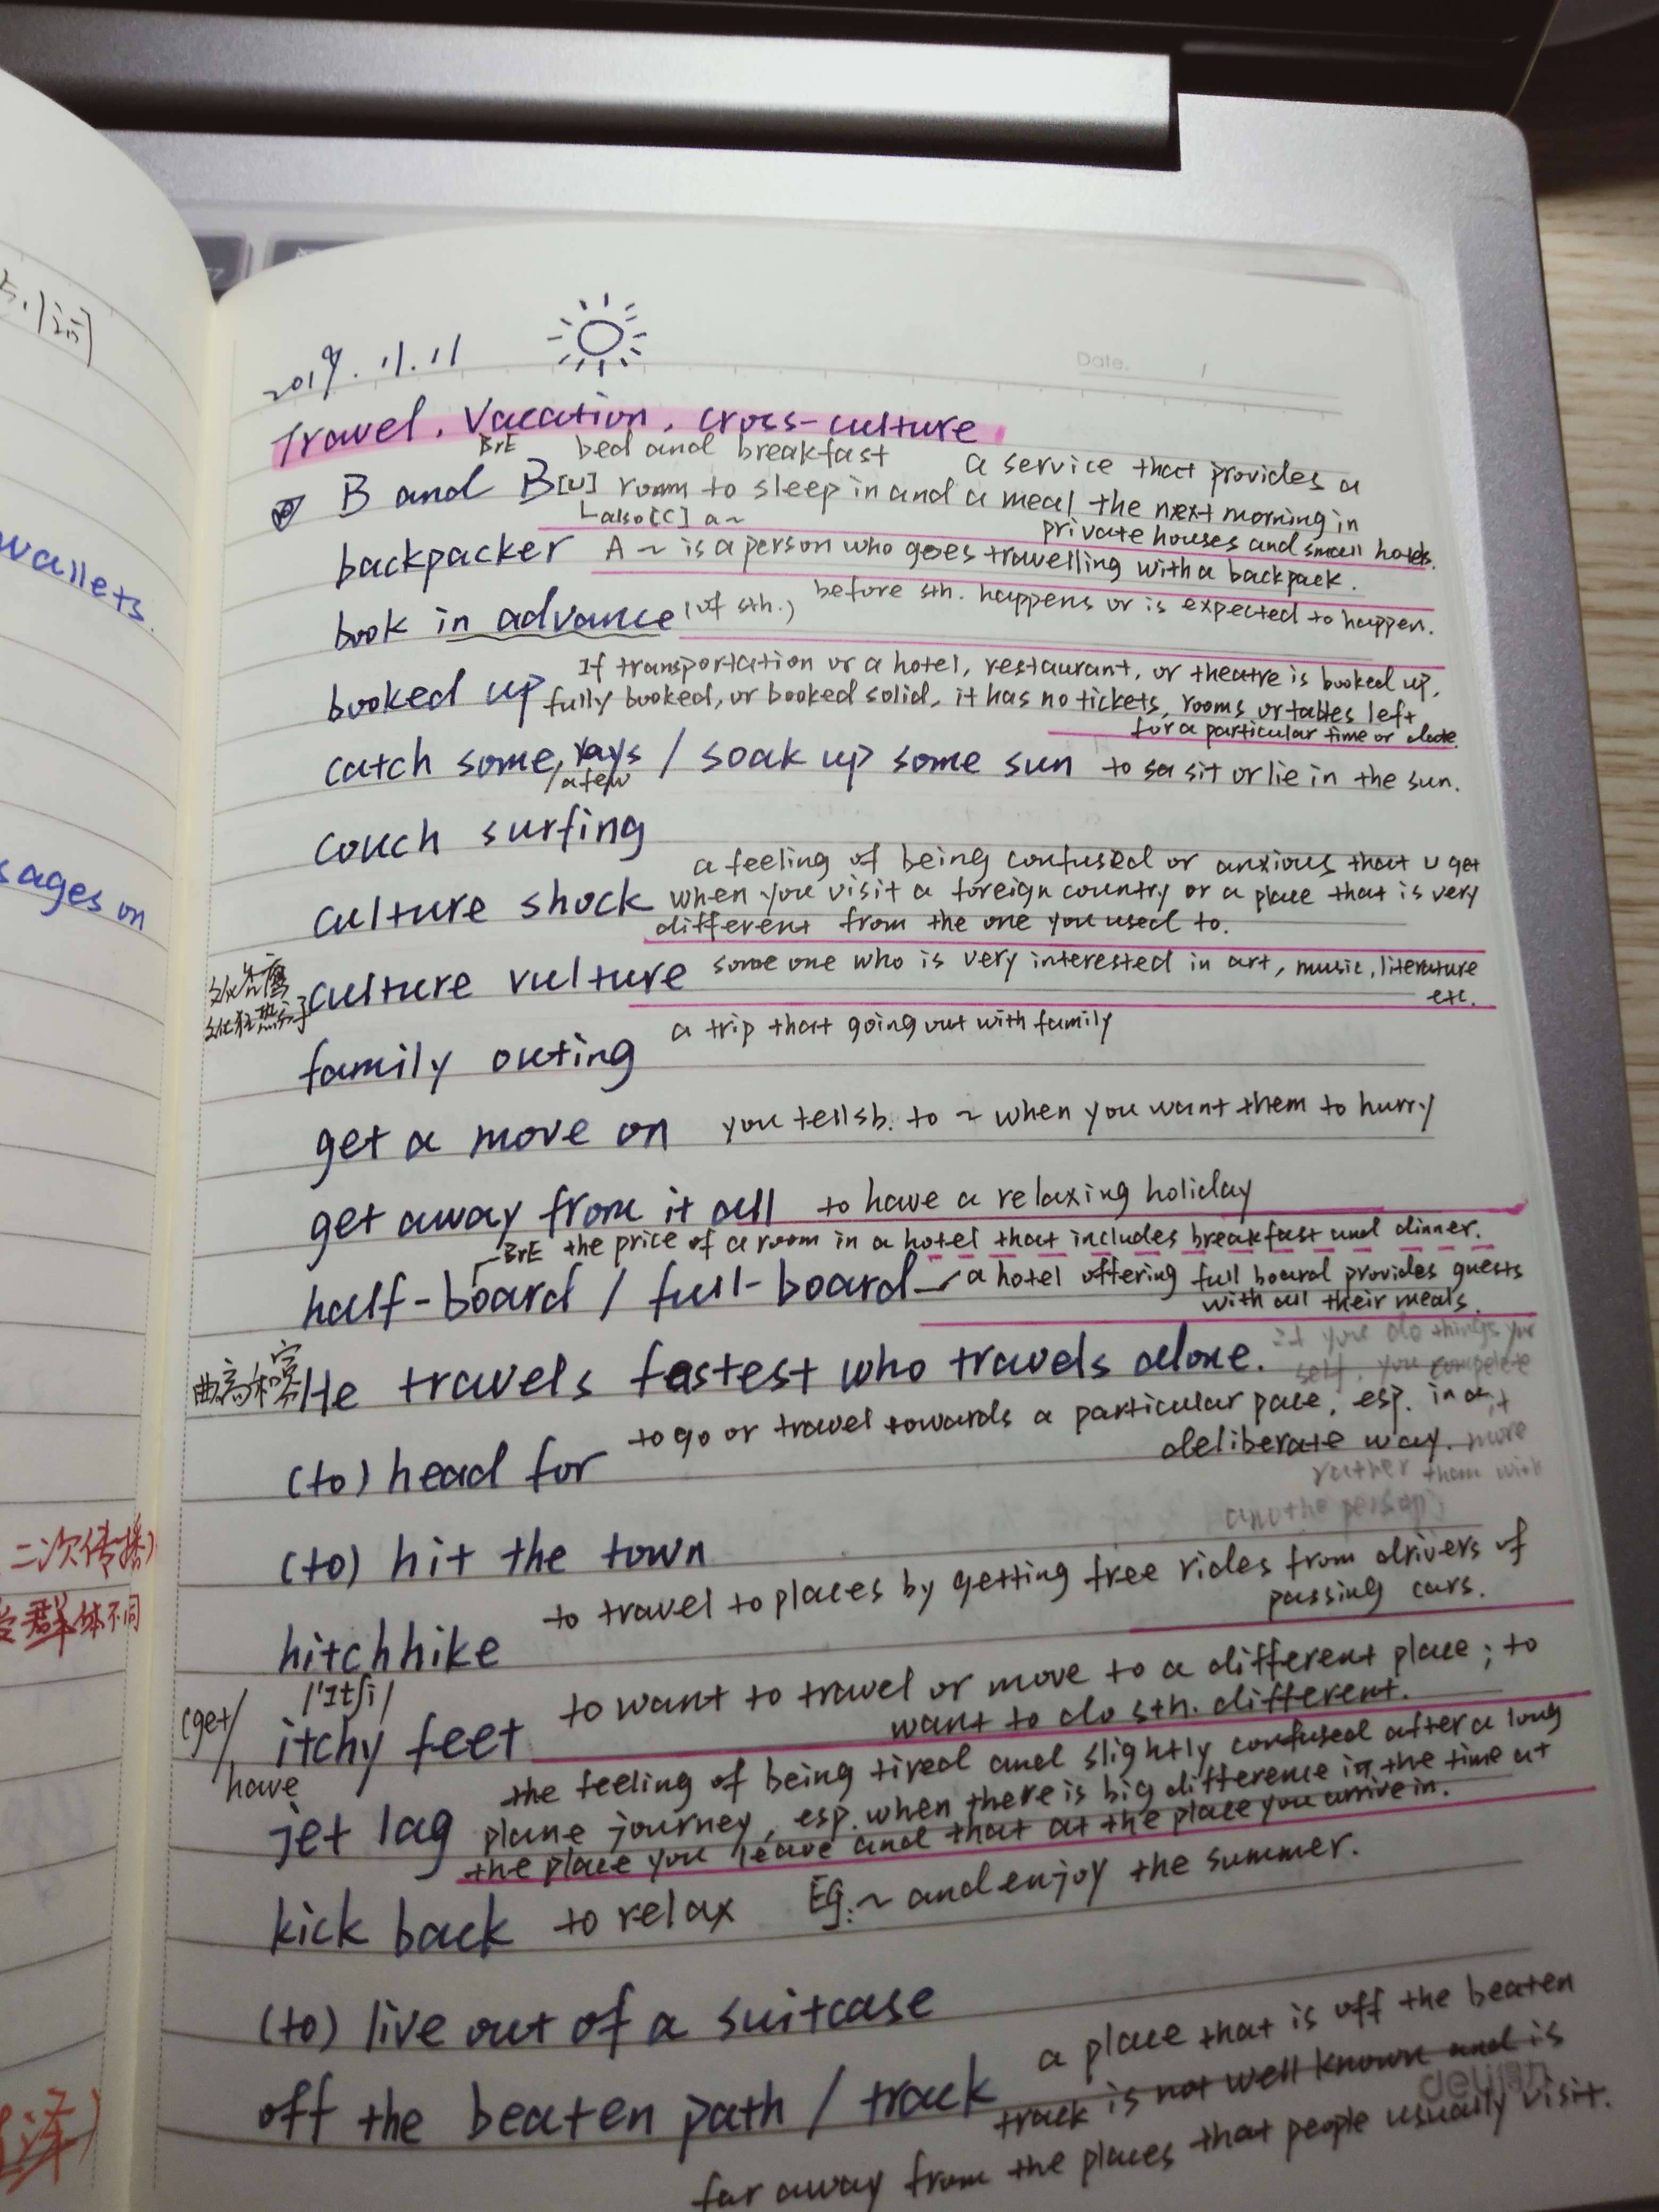 wallets.
sages on
二次传播)
受群体不同
2019.11.11
Date.
Travel, Vacation, cross-culture
BrE bed and breakfast a service that provides a
B and B [U] room to sleep in and a meal the next morning in
also [C] a~ private houses and small hotels.
backpacker A ~ is a person who goes travelling with a backpack.
book in advance (of sth.) before sth. happens or is expected to happen.
If transportation or a hotel, restaurant, or theatre is booked up,
booked up fully booked, or booked solid, it has no tickets, rooms or tables left
for a particular time or date.
catch some rays / soak up some sun to sit or lie in the sun.
/a few
couch surfing
a feeling of being confused or anxious that u get
culture shock when you visit a foreign country or a place that is very
different from the one you used to.
culture vulture some one who is very interested in art, music, literature
etc.
a trip that going out with family
family outing
get a move on you tell sb. to ~ when you want them to hurry
get away from it all to have a relaxing holiday
BrE the price of a room in a hotel that includes breakfast and dinner.
half-board / full-board a hotel offering full board provides guests
with all their meals.
曲高和寡 He travels fastest who travels alone. if you do things your
self, you compelete
(to) head for to go or travel towards a particular pace, esp. in a it
deliberate way. more
rather than with
anothe person
(to) hit the town
hitchhike to travel to places by getting free rides from drivers of
passing cars.
/'ɪtʃi/
(get/ itchy feet to want to travel or move to a different place; to
have want to do sth. different.
the feeling of being tired and slightly confused after a long
jet lag plane journey, esp. when there is big difference in the time at
the place you leave and that at the place you arrive in.
kick back to relax EG: ~ and enjoy the summer.
(to) live out of a suitcase
a place that is off the beaten
off the beaten path / track track is not well known and is
deli得力
far away from the places that people usually visit.